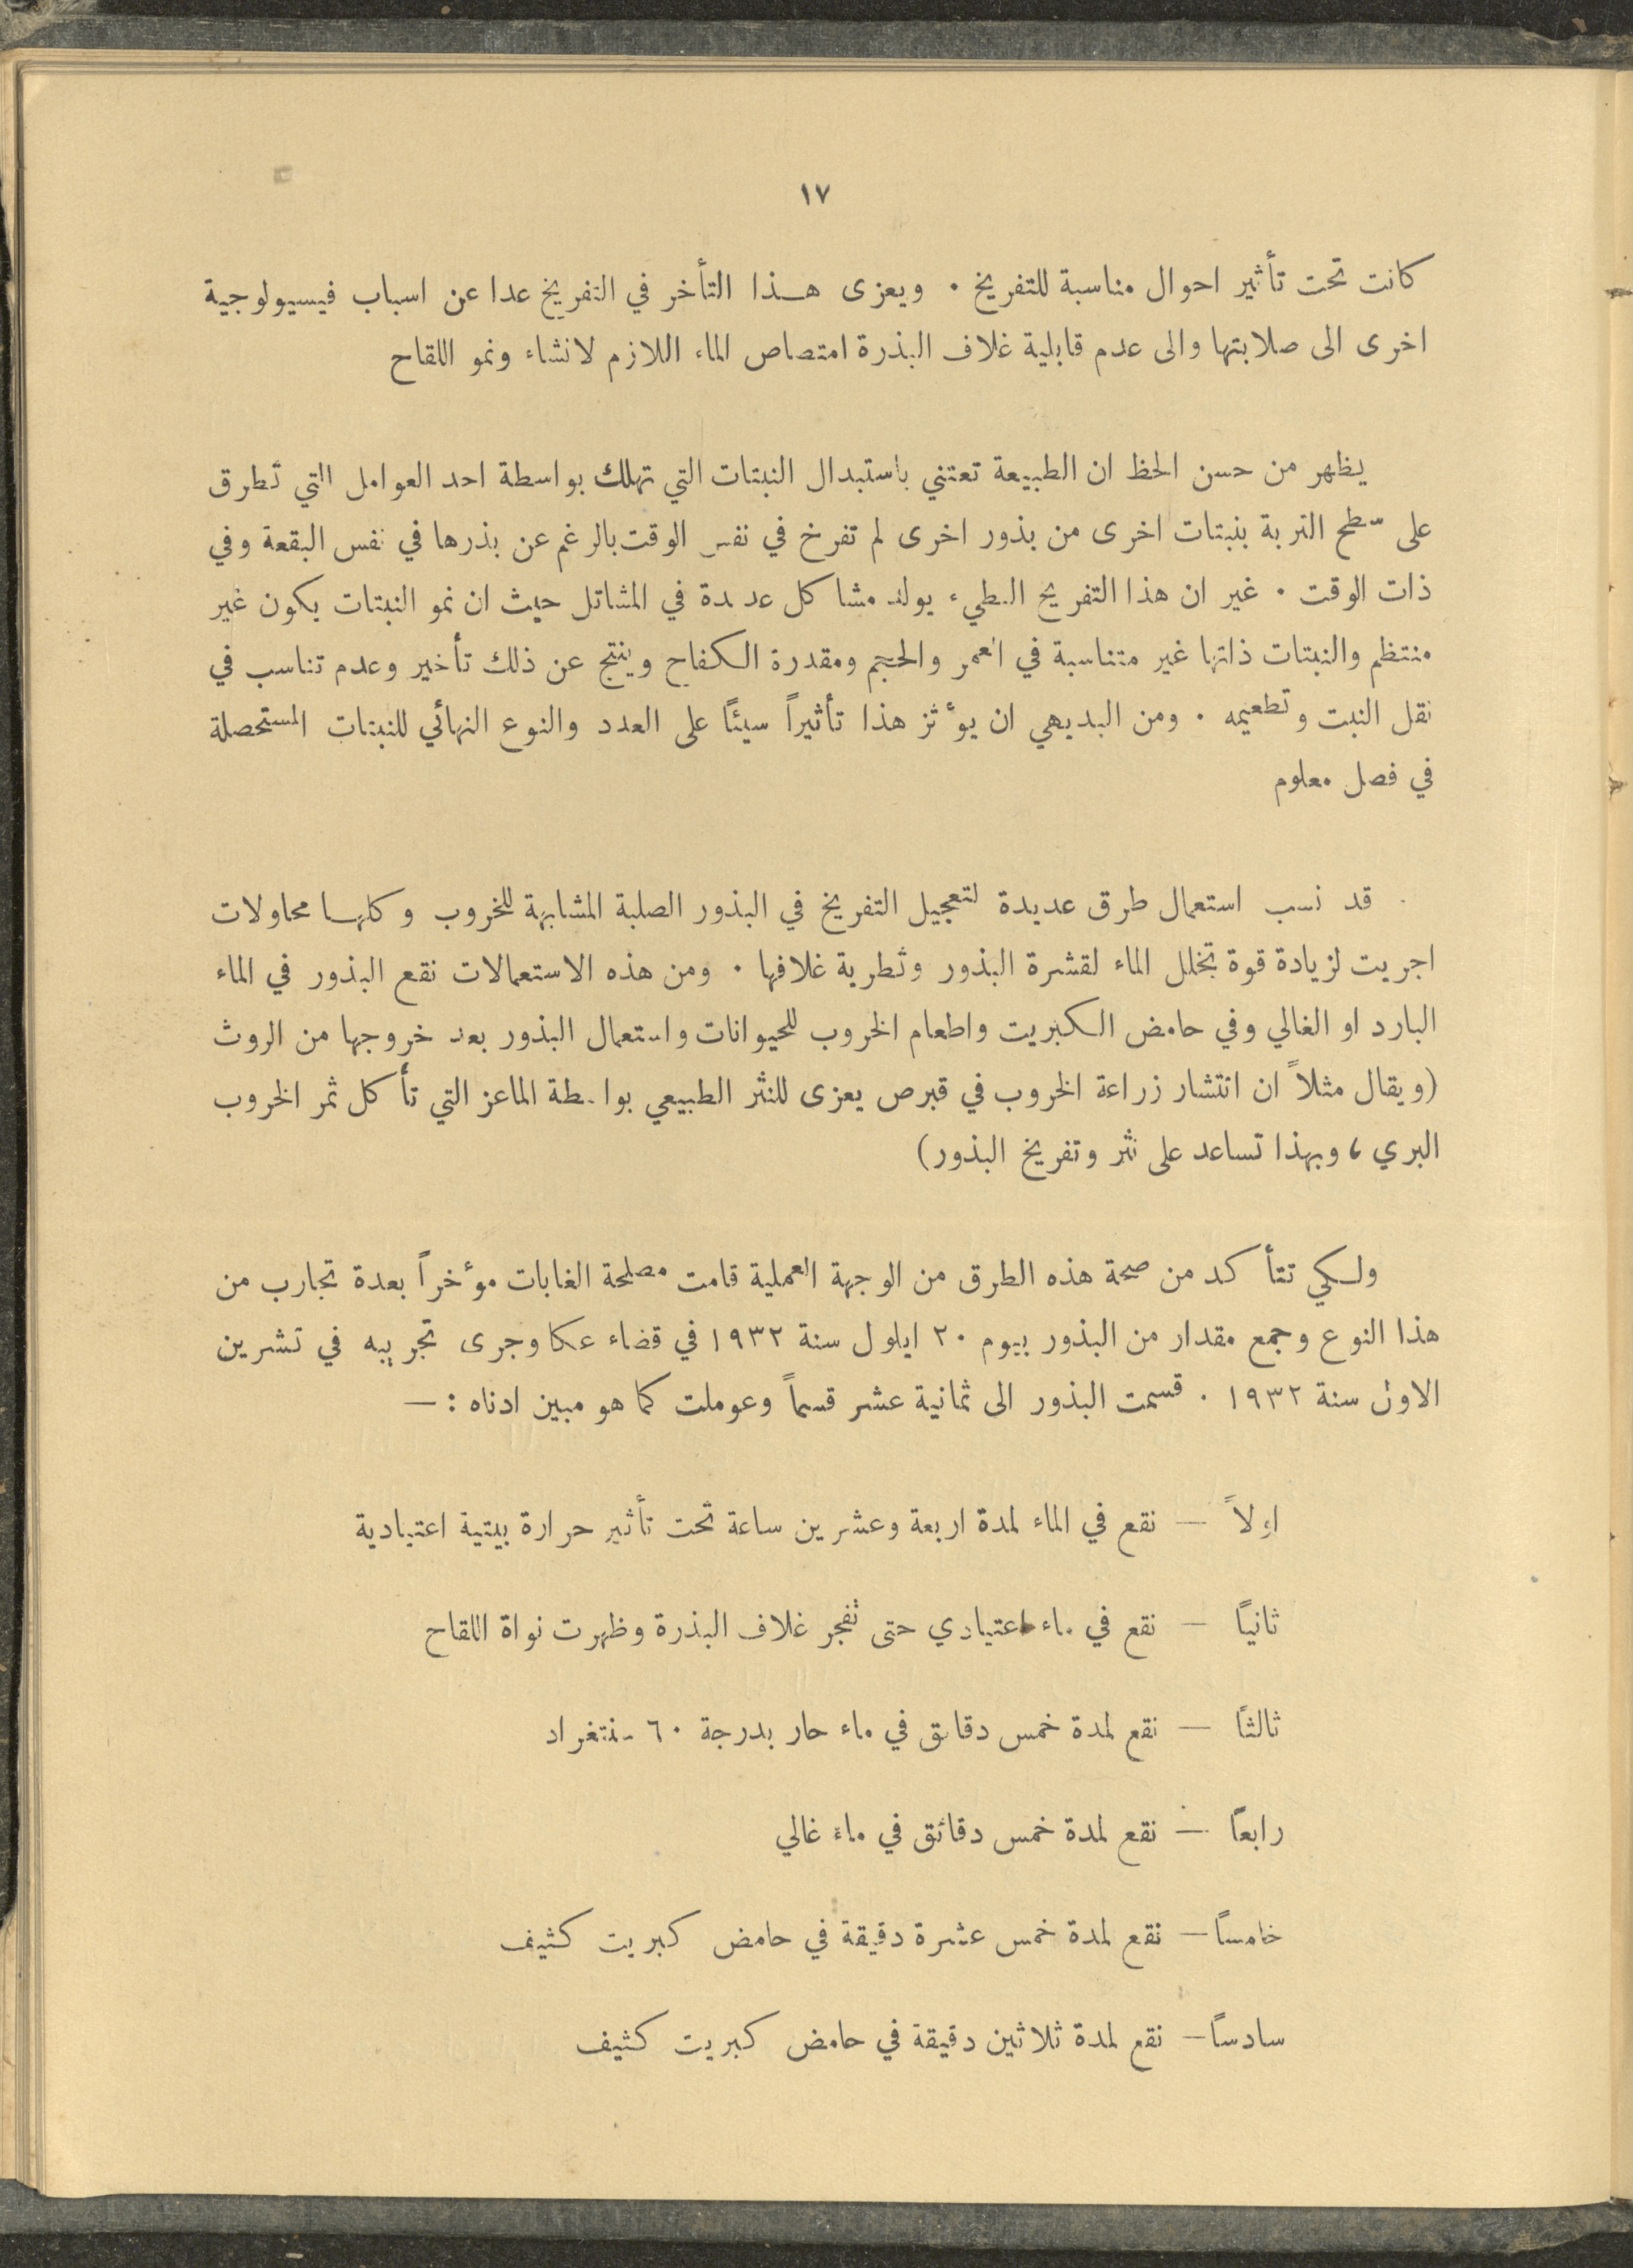 ١٧
كانت تحت تأثير احوال مناسبة للتفريخ . ويعزى هـذا التأخر في التفريخ عدا عن اسباب فيسيولوجية
اخرى الى صلابتها والى عدم قابلية غلاف البذرة امتصاص الماء اللازم لانشاء ونمو اللقاح
يظهر من حسن الحظ ان الطبيعة تعتني باستبدال النبتات التي تهلك بواسطة احد العوامل التي تطرق
على سطح التربة بنبتات اخرى من بذور اخرى لم تفرخ في نفس الوقت بالرغم عن بذرها في نفس البقعة وفي
ذات الوقت . غير ان هذا التفريخ البطيء يولد مشاكل عديدة في المشاتل حيث ان نمو النبتات يكون غير
منتظم والنبتات ذاتها غير متناسبة في العمر والحجم ومقدرة الكفاح وينتج عن ذلك تأخير وعدم تناسب في
نقل النبت وتطعيمه . ومن البديهي ان يوٴثر هذا تأثيراً سيئاً على العدد والنوع النهائي للنبتات المستحصلة
في فصل معلوم
قد نسب استعمال طرق عديدة لتعجيل التفريخ في البذور الصلبة المشابهة للخروب وكلهـا محاولات
اجريت لزيادة قوة تخلل الماء لقشرة البذور وتطرية غلافها . ومن هذه الاستعمالات نقع البذور في الماء
البارد او الغالي وفي حامض الكبريت واطعام الخروب للحيوانات واستعمال البذور بعد خروجها من الروث
(ويقال مثلاً ان انتشار زراعة الخروب في قبرص يعزى للنثر الطبيعي بواسطة الماعز التي تأكل ثمر الخروب
البري ، وبهذا تساعد على نثر وتفريخ البذور)
ولـكي تتأكد من صحة هذه الطرق من الوجهة العملية قامت مصلحة الغابات موٴخراً بعدة تجارب من
هذا النوع وجمع مقدار من البذور بيوم ٢٠ ايلول سنة ١٩٣٢ في قضاء عكا وجرى تجريبه في تشرين
الاول سنة ١٩٣٢ . قسمت البذور الى ثمانية عشر قسماً وعوملت كما هو مبين ادناه : —
اولاً — نقع في الماء لمدة اربعة وعشرين ساعة تحت تأثير حرارة بيتية اعتيادية
ثانياً — نقع في ماء اعتيادي حتى تفجر غلاف البذرة وظهرت نواة اللقاح
ثالثاً — نقع لمدة خمس دقائق في ماء حار بدرجة ٦٠ سنتغراد
رابعاً — نقع لمدة خمس دقائق في ماء غالي
خامساً — نقع لمدة خمس عشرة دقيقة في حامض كبريت كثيف
سادساً — نقع لمدة ثلاثين دقيقة في حامض كبريت كثيف